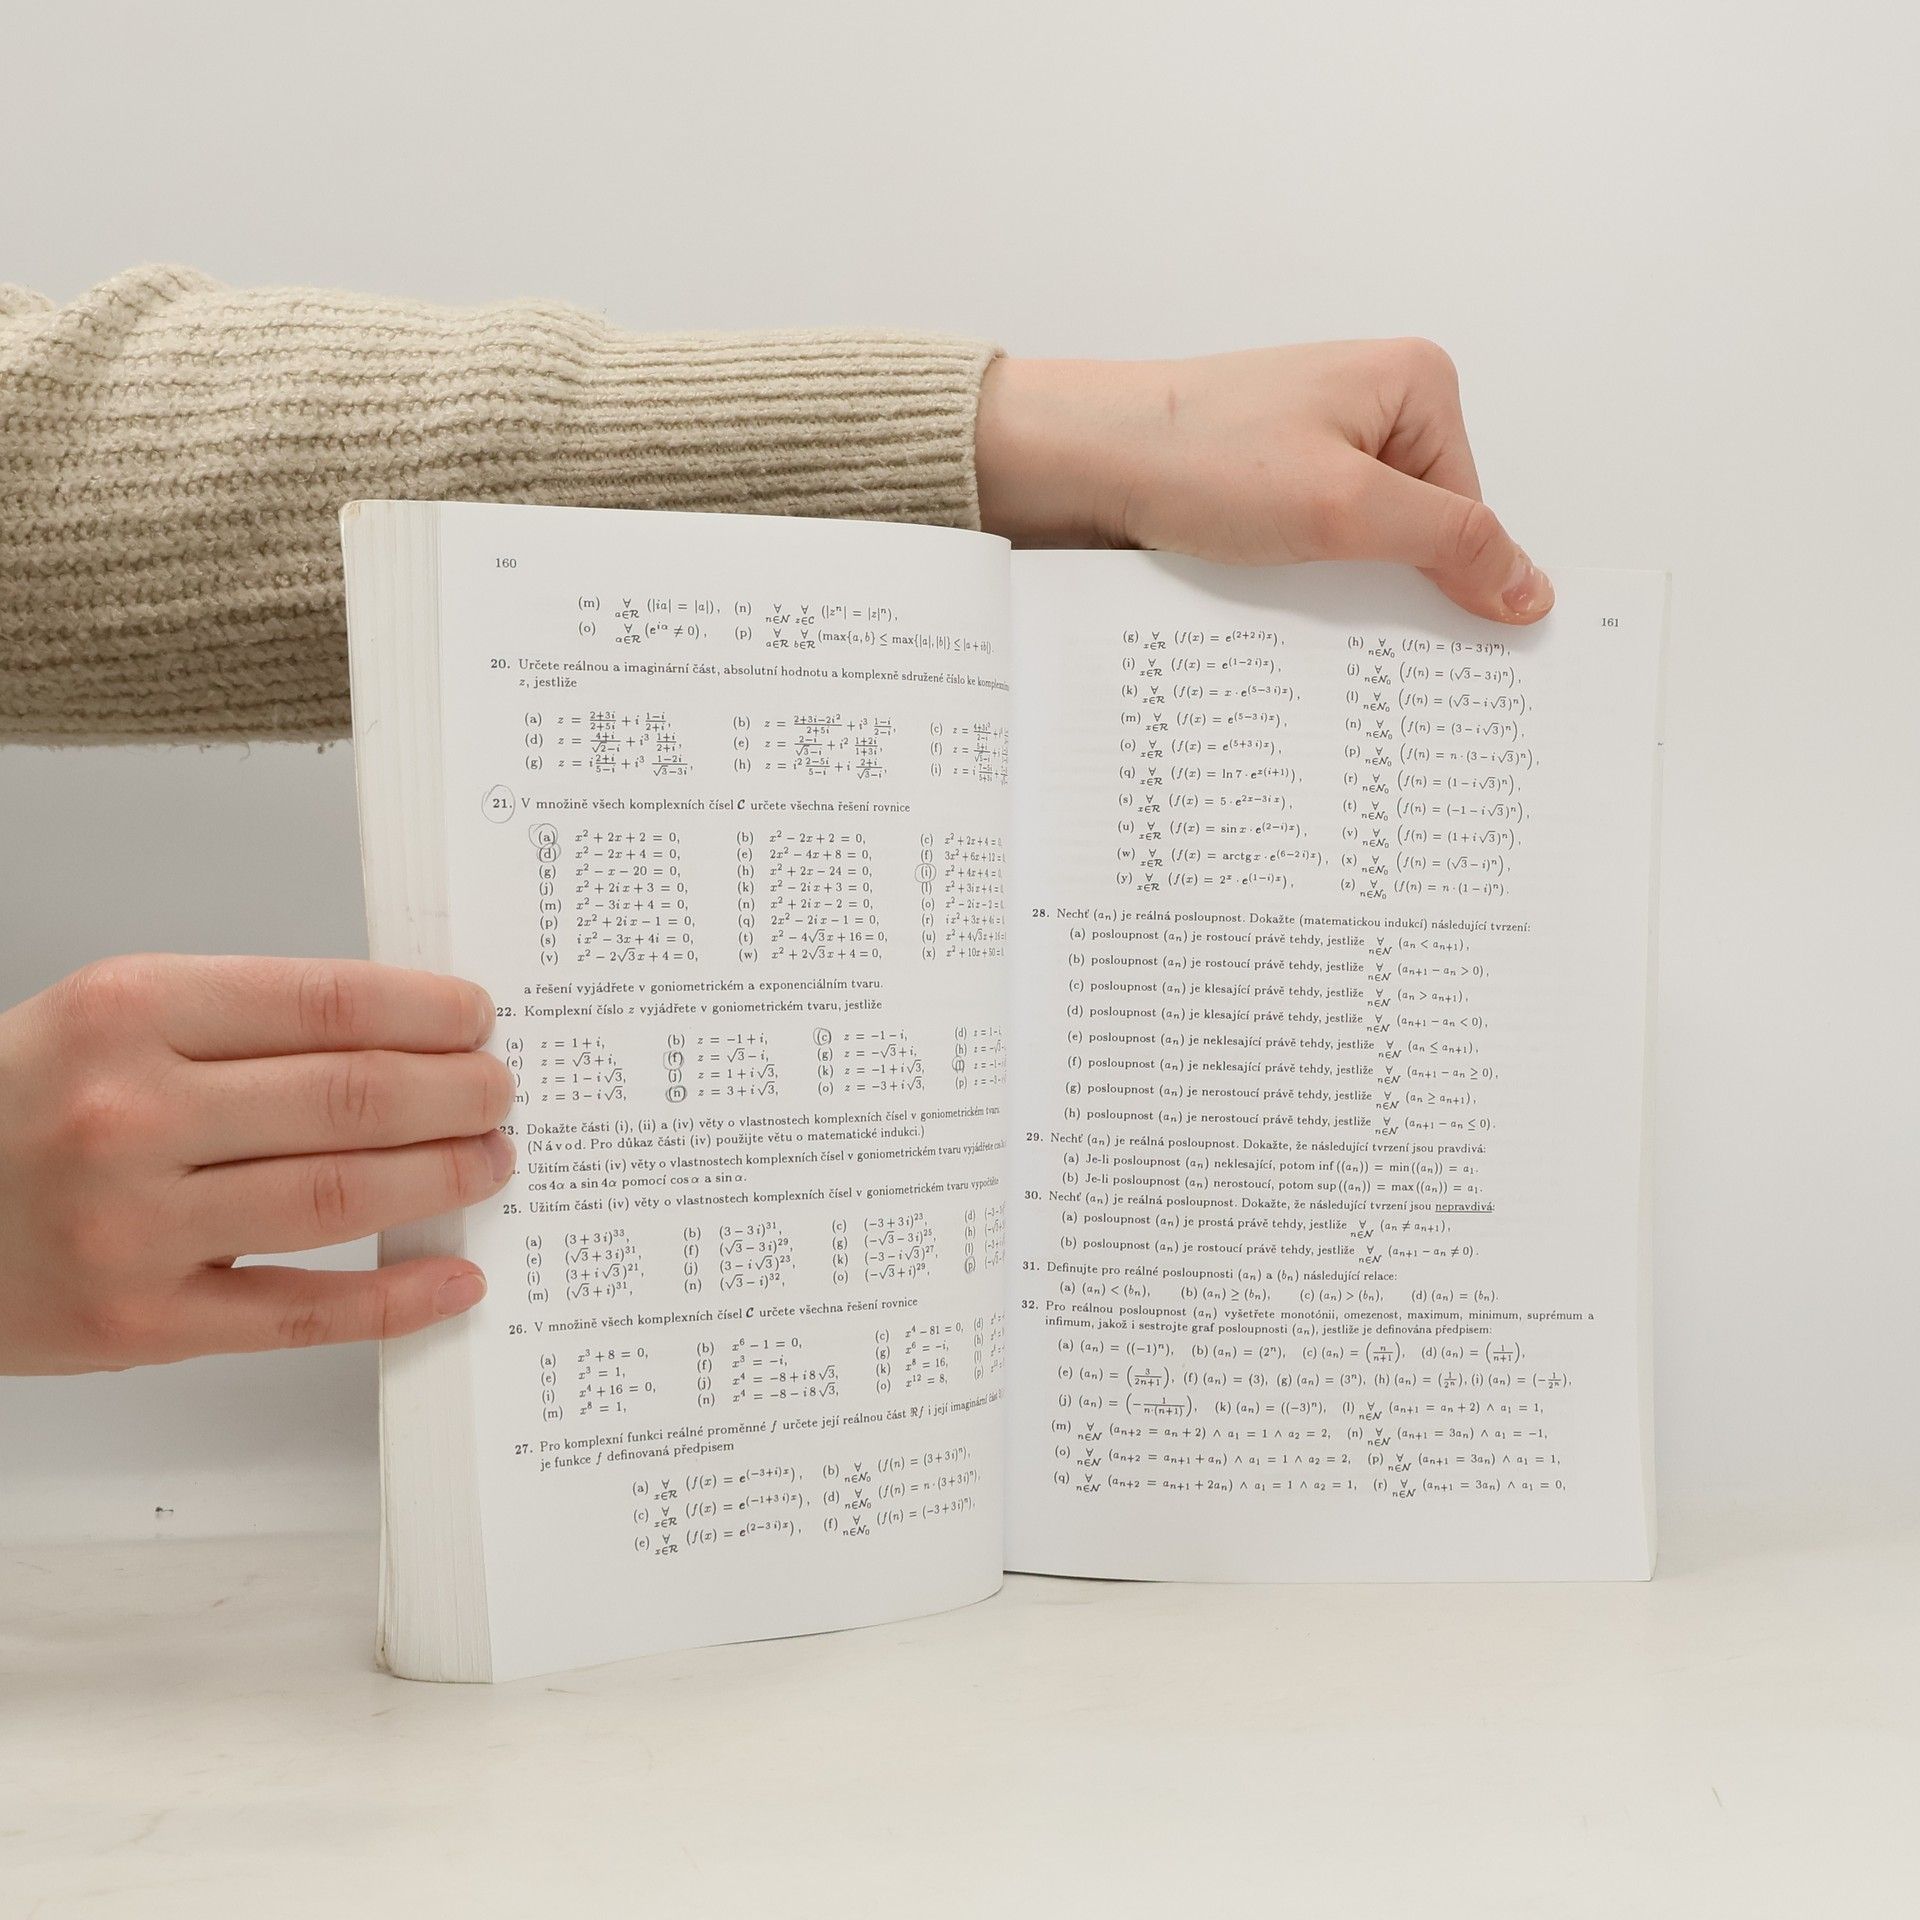 160
(m) ∀ a∈R (|ia| = |a|), (n) ∀ n∈N ∀ z∈C (|zⁿ| = |z|ⁿ),
(o) ∀ a∈R (e^{iα} ≠ 0), (p) ∀ a∈R ∀ b∈R (max{a, b} ≤ max{|a|, |b|} ≤ |a + ib|).
20. Určete reálnou a imaginární část, absolutní hodnotu a komplexně sdružené číslo ke
z, jestliže
(a) z = (2+3i)/(2+5i) + i (1−i)/(2+i), (b) z = (2+3i−2i²)/(2+5i) + i³ (1−i)/(2−i), (c) z =
(d) z = (4+i)/(√2−i) + i³ (1+i)/(2+i), (e) z = (2−i)/(√3−i) + i² (1+2i)/(1+3i), (f) z =
(g) z = i (2+i)/(5−i) + i³ (1−2i)/(√3−3i), (h) z = i² (2−5i)/(5−i) + i (2+i)/(√3−i), (i) z = i
21. V množině všech komplexních čísel C určete všechna řešení rovnice
(a) x² + 2x + 2 = 0, (b) x² − 2x + 2 = 0, (c) x² + 2x + 4 = 0,
(d) x² − 2x + 4 = 0, (e) 2x² − 4x + 8 = 0, (f) 3x² + 6x + 12 =
(g) x² − x − 20 = 0, (h) x² + 2x − 24 = 0, (i) x² + 4x + 4 = 0,
(j) x² + 2i x + 3 = 0, (k) x² − 2i x + 3 = 0, (l) x² + 3i x + 4 = 0
(m) x² − 3i x + 4 = 0, (n) x² + 2i x − 2 = 0, (o) x² − 2i x − 2 = 0
(p) 2x² + 2i x − 1 = 0, (q) 2x² − 2i x − 1 = 0, (r) i x² + 3x + 4i = 0
(s) i x² − 3x + 4i = 0, (t) x² − 4√3 x + 16 = 0, (u) x² + 4√3 x + 16 =
(v) x² − 2√3 x + 4 = 0, (w) x² + 2√3 x + 4 = 0, (x) x² + 10x + 50 =
a řešení vyjádřete v goniometrickém a exponenciálním tvaru.
22. Komplexní číslo z vyjádřete v goniometrickém tvaru, jestliže
(a) z = 1 + i, (b) z = −1 + i, (c) z = −1 − i, (d) z = 1 − i,
(e) z = √3 + i, (f) z = √3 − i, (g) z = −√3 + i, (h) z = −√3
z = 1 − i√3, (j) z = 1 + i√3, (k) z = −1 + i√3, (l) z = −1 −
z = 3 − i√3, (n) z = 3 + i√3, (o) z = −3 + i√3, (p) z = −3 −
23. Dokažte části (i), (ii) a (iv) věty o vlastnostech komplexních čísel v goniometrickém tvaru.
(Návod. Pro důkaz části (iv) použijte větu o matematické indukci.)
Užitím části (iv) věty o vlastnostech komplexních čísel v goniometrickém tvaru vyjádřete
cos 4α a sin 4α pomocí cos α a sin α.
25. Užitím části (iv) věty o vlastnostech komplexních čísel v goniometrickém tvaru vypočtěte
(a) (3 + 3i)³³, (b) (3 − 3i)³¹, (c) (−3 + 3i)²³, (d) (−3 −
(e) (√3 + 3i)³¹, (f) (√3 − 3i)²⁹, (g) (−√3 − 3i)²⁵, (h)
(i) (3 + i√3)²¹, (j) (3 − i√3)²³, (k) (−3 − i√3)²⁷, (l)
(m) (√3 + i)³¹, (n) (√3 − i)³², (o) (−√3 + i)²⁹, (p)
26. V množině všech komplexních čísel C určete všechna řešení rovnice
(a) x³ + 8 = 0, (b) x⁶ − 1 = 0, (c) x⁴ − 81 = 0, (d)
(e) x³ = 1, (f) x³ = −i, (g) x⁶ = −i, (h)
(i) x⁴ + 16 = 0, (j) x⁴ = −8 + i 8√3, (k) x⁸ = 16, (l)
(m) x⁸ = 1, (n) x⁴ = −8 − i 8√3, (o) x¹² = 8, (p)
27. Pro komplexní funkci reálné proměnné f určete její reálnou část ℜf i její imaginární část
je funkce f definovaná předpisem
(a) ∀ x∈R (f(x) = e^{(−3+i)x}), (b) ∀ n∈N₀ (f(n) = (3 + 3i)ⁿ),
(c) ∀ x∈R (f(x) = e^{(−1+3i)x}), (d) ∀ n∈N₀ (f(n) = n·(3 + 3i)ⁿ),
(e) ∀ x∈R (f(x) = e^{(2−3i)x}), (f) ∀ n∈N₀ (f(n) = (−3 + 3i)ⁿ),
161
(g) ∀ x∈R (f(x) = e^{(2+2i)x}), (h) ∀ n∈N₀ (f(n) = (3 − 3i)ⁿ),
(i) ∀ x∈R (f(x) = e^{(1−2i)x}), (j) ∀ n∈N₀ (f(n) = (√3 − 3i)ⁿ),
(k) ∀ x∈R (f(x) = x · e^{(5−3i)x}), (l) ∀ n∈N₀ (f(n) = (√3 − i√3)ⁿ),
(m) ∀ x∈R (f(x) = e^{(5−3i)x}), (n) ∀ n∈N₀ (f(n) = (3 − i√3)ⁿ),
(o) ∀ x∈R (f(x) = e^{(5+3i)x}), (p) ∀ n∈N₀ (f(n) = n · (3 − i√3)ⁿ),
(q) ∀ x∈R (f(x) = ln 7 · e^{x(i+1)}), (r) ∀ n∈N₀ (f(n) = (1 − i√3)ⁿ),
(s) ∀ x∈R (f(x) = 5 · e^{2x−3ix}), (t) ∀ n∈N₀ (f(n) = (−1 − i√3)ⁿ),
(u) ∀ x∈R (f(x) = sin x · e^{(2−i)x}), (v) ∀ n∈N₀ (f(n) = (1 + i√3)ⁿ),
(w) ∀ x∈R (f(x) = arctg x · e^{(6−2i)x}), (x) ∀ n∈N₀ (f(n) = (√3 − i)ⁿ),
(y) ∀ x∈R (f(x) = 2ˣ · e^{(1−i)x}), (z) ∀ n∈N₀ (f(n) = n · (1 − i)ⁿ).
28. Nechť (aₙ) je reálná posloupnost. Dokažte (matematickou indukcí) následující tvrzení:
(a) posloupnost (aₙ) je rostoucí právě tehdy, jestliže ∀ n∈N (aₙ < aₙ₊₁),
(b) posloupnost (aₙ) je rostoucí právě tehdy, jestliže ∀ n∈N (aₙ₊₁ − aₙ > 0),
(c) posloupnost (aₙ) je klesající právě tehdy, jestliže ∀ n∈N (aₙ > aₙ₊₁),
(d) posloupnost (aₙ) je klesající právě tehdy, jestliže ∀ n∈N (aₙ₊₁ − aₙ < 0),
(e) posloupnost (aₙ) je neklesající právě tehdy, jestliže ∀ n∈N (aₙ ≤ aₙ₊₁),
(f) posloupnost (aₙ) je neklesající právě tehdy, jestliže ∀ n∈N (aₙ₊₁ − aₙ ≥ 0),
(g) posloupnost (aₙ) je nerostoucí právě tehdy, jestliže ∀ n∈N (aₙ ≥ aₙ₊₁),
(h) posloupnost (aₙ) je nerostoucí právě tehdy, jestliže ∀ n∈N (aₙ₊₁ − aₙ ≤ 0).
29. Nechť (aₙ) je reálná posloupnost. Dokažte, že následující tvrzení jsou pravdivá:
(a) Je-li posloupnost (aₙ) neklesající, potom inf((aₙ)) = min((aₙ)) = a₁.
(b) Je-li posloupnost (aₙ) nerostoucí, potom sup((aₙ)) = max((aₙ)) = a₁.
30. Nechť (aₙ) je reálná posloupnost. Dokažte, že následující tvrzení jsou nepravdivá:
(a) posloupnost (aₙ) je prostá právě tehdy, jestliže ∀ n∈N (aₙ ≠ aₙ₊₁),
(b) posloupnost (aₙ) je rostoucí právě tehdy, jestliže ∀ n∈N (aₙ₊₁ − aₙ ≠ 0).
31. Definujte pro reálné posloupnosti (aₙ) a (bₙ) následující relace:
(a) (aₙ) < (bₙ), (b) (aₙ) ≥ (bₙ), (c) (aₙ) > (bₙ), (d) (aₙ) = (bₙ).
32. Pro reálnou posloupnost (aₙ) vyšetřete monotónii, omezenost, maximum, minimum, suprémum a
infimum, jakož i sestrojte graf posloupnosti (aₙ), jestliže je definována předpisem:
(a) (aₙ) = ((−1)ⁿ), (b) (aₙ) = (2ⁿ), (c) (aₙ) = (n/(n+1)), (d) (aₙ) = (1/(n+1)),
(e) (aₙ) = (3/(2n+1)), (f) (aₙ) = (3), (g) (aₙ) = (3ⁿ), (h) (aₙ) = (1/2ⁿ), (i) (aₙ) = (−1/2ⁿ),
(j) (aₙ) = (−1/(n·(n+1))), (k) (aₙ) = ((−3)ⁿ), (l) ∀ n∈N (aₙ₊₁ = aₙ + 2) ∧ a₁ = 1,
(m) ∀ n∈N (aₙ₊₂ = aₙ + 2) ∧ a₁ = 1 ∧ a₂ = 2, (n) ∀ n∈N (aₙ₊₁ = 3aₙ) ∧ a₁ = −1,
(o) ∀ n∈N (aₙ₊₂ = aₙ₊₁ + aₙ) ∧ a₁ = 1 ∧ a₂ = 2, (p) ∀ n∈N (aₙ₊₁ = 3aₙ) ∧ a₁ = 1,
(q) ∀ n∈N (aₙ₊₂ = aₙ₊₁ + 2aₙ) ∧ a₁ = 1 ∧ a₂ = 1, (r) ∀ n∈N (aₙ₊₁ = 3aₙ) ∧ a₁ = 0,